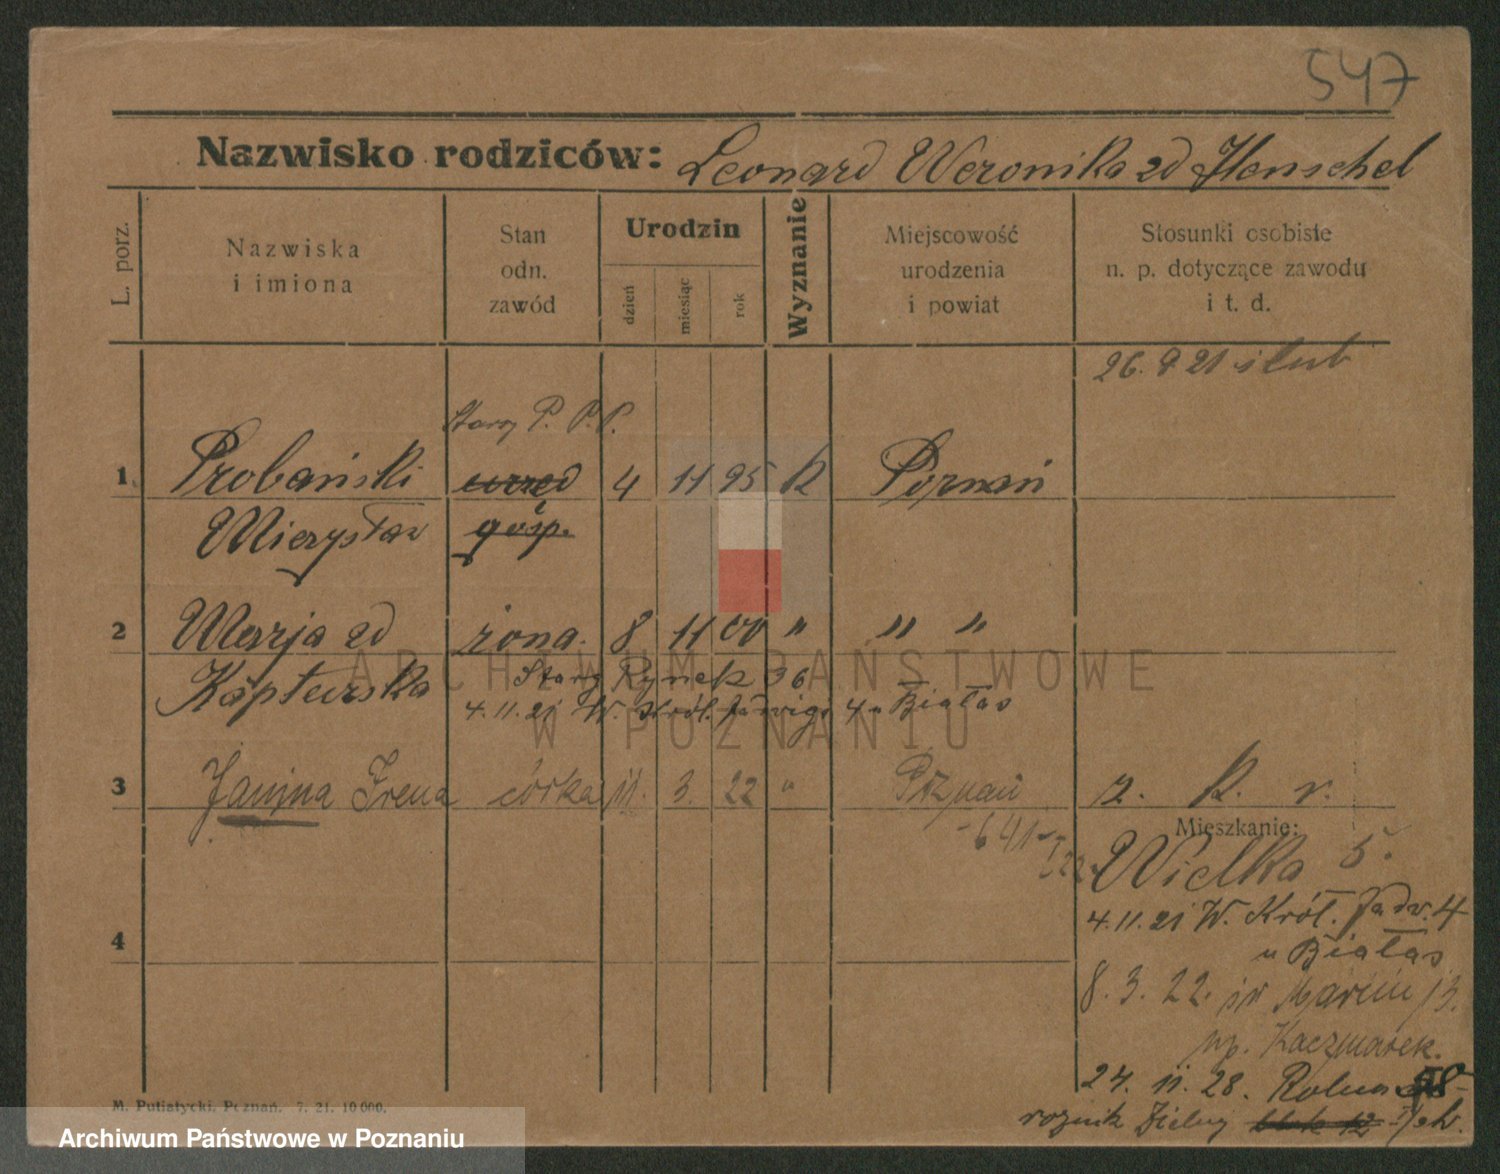 547
Nazwisko rodziców: Leonard Weronika zd Henschel
L. porz.
Nazwiska
i imiona
Stan
odn.
zawód
Urodzin
dzień
miesiąc
rok
Wyznanie
Miejscowość
urodzenia
i powiat
Stosunki osobiste
n. p. dotyczące zawodu
i t. d.
26. 9 21 ślub
P. P. P.
1 Probański urzęd 4 11 95 k Poznań
Mieczysław gosp.
2 Marja zd żona. 8 11 00 " " "
Kapturska Stary Rynek 36
4.11.21 W. Król. Jadwigi 4 u Białas
3 Janina Irena córka 11. 3. 22 " Poznań z. k. r.
-641-
Mieszkanie:
Wielka 5.
4.11.21 W. Król. Jadw. 4
u Białas
4
8. 3. 22. św Marcin 13.
np. Kaczmarek.
24. 11. 28. Rolna 58
M. Putiatycki, Poznań. 7. 21. 10 000.
ARCHIWUM PAŃSTWOWE
W POZNANIU
Archiwum Państwowe w Poznaniu